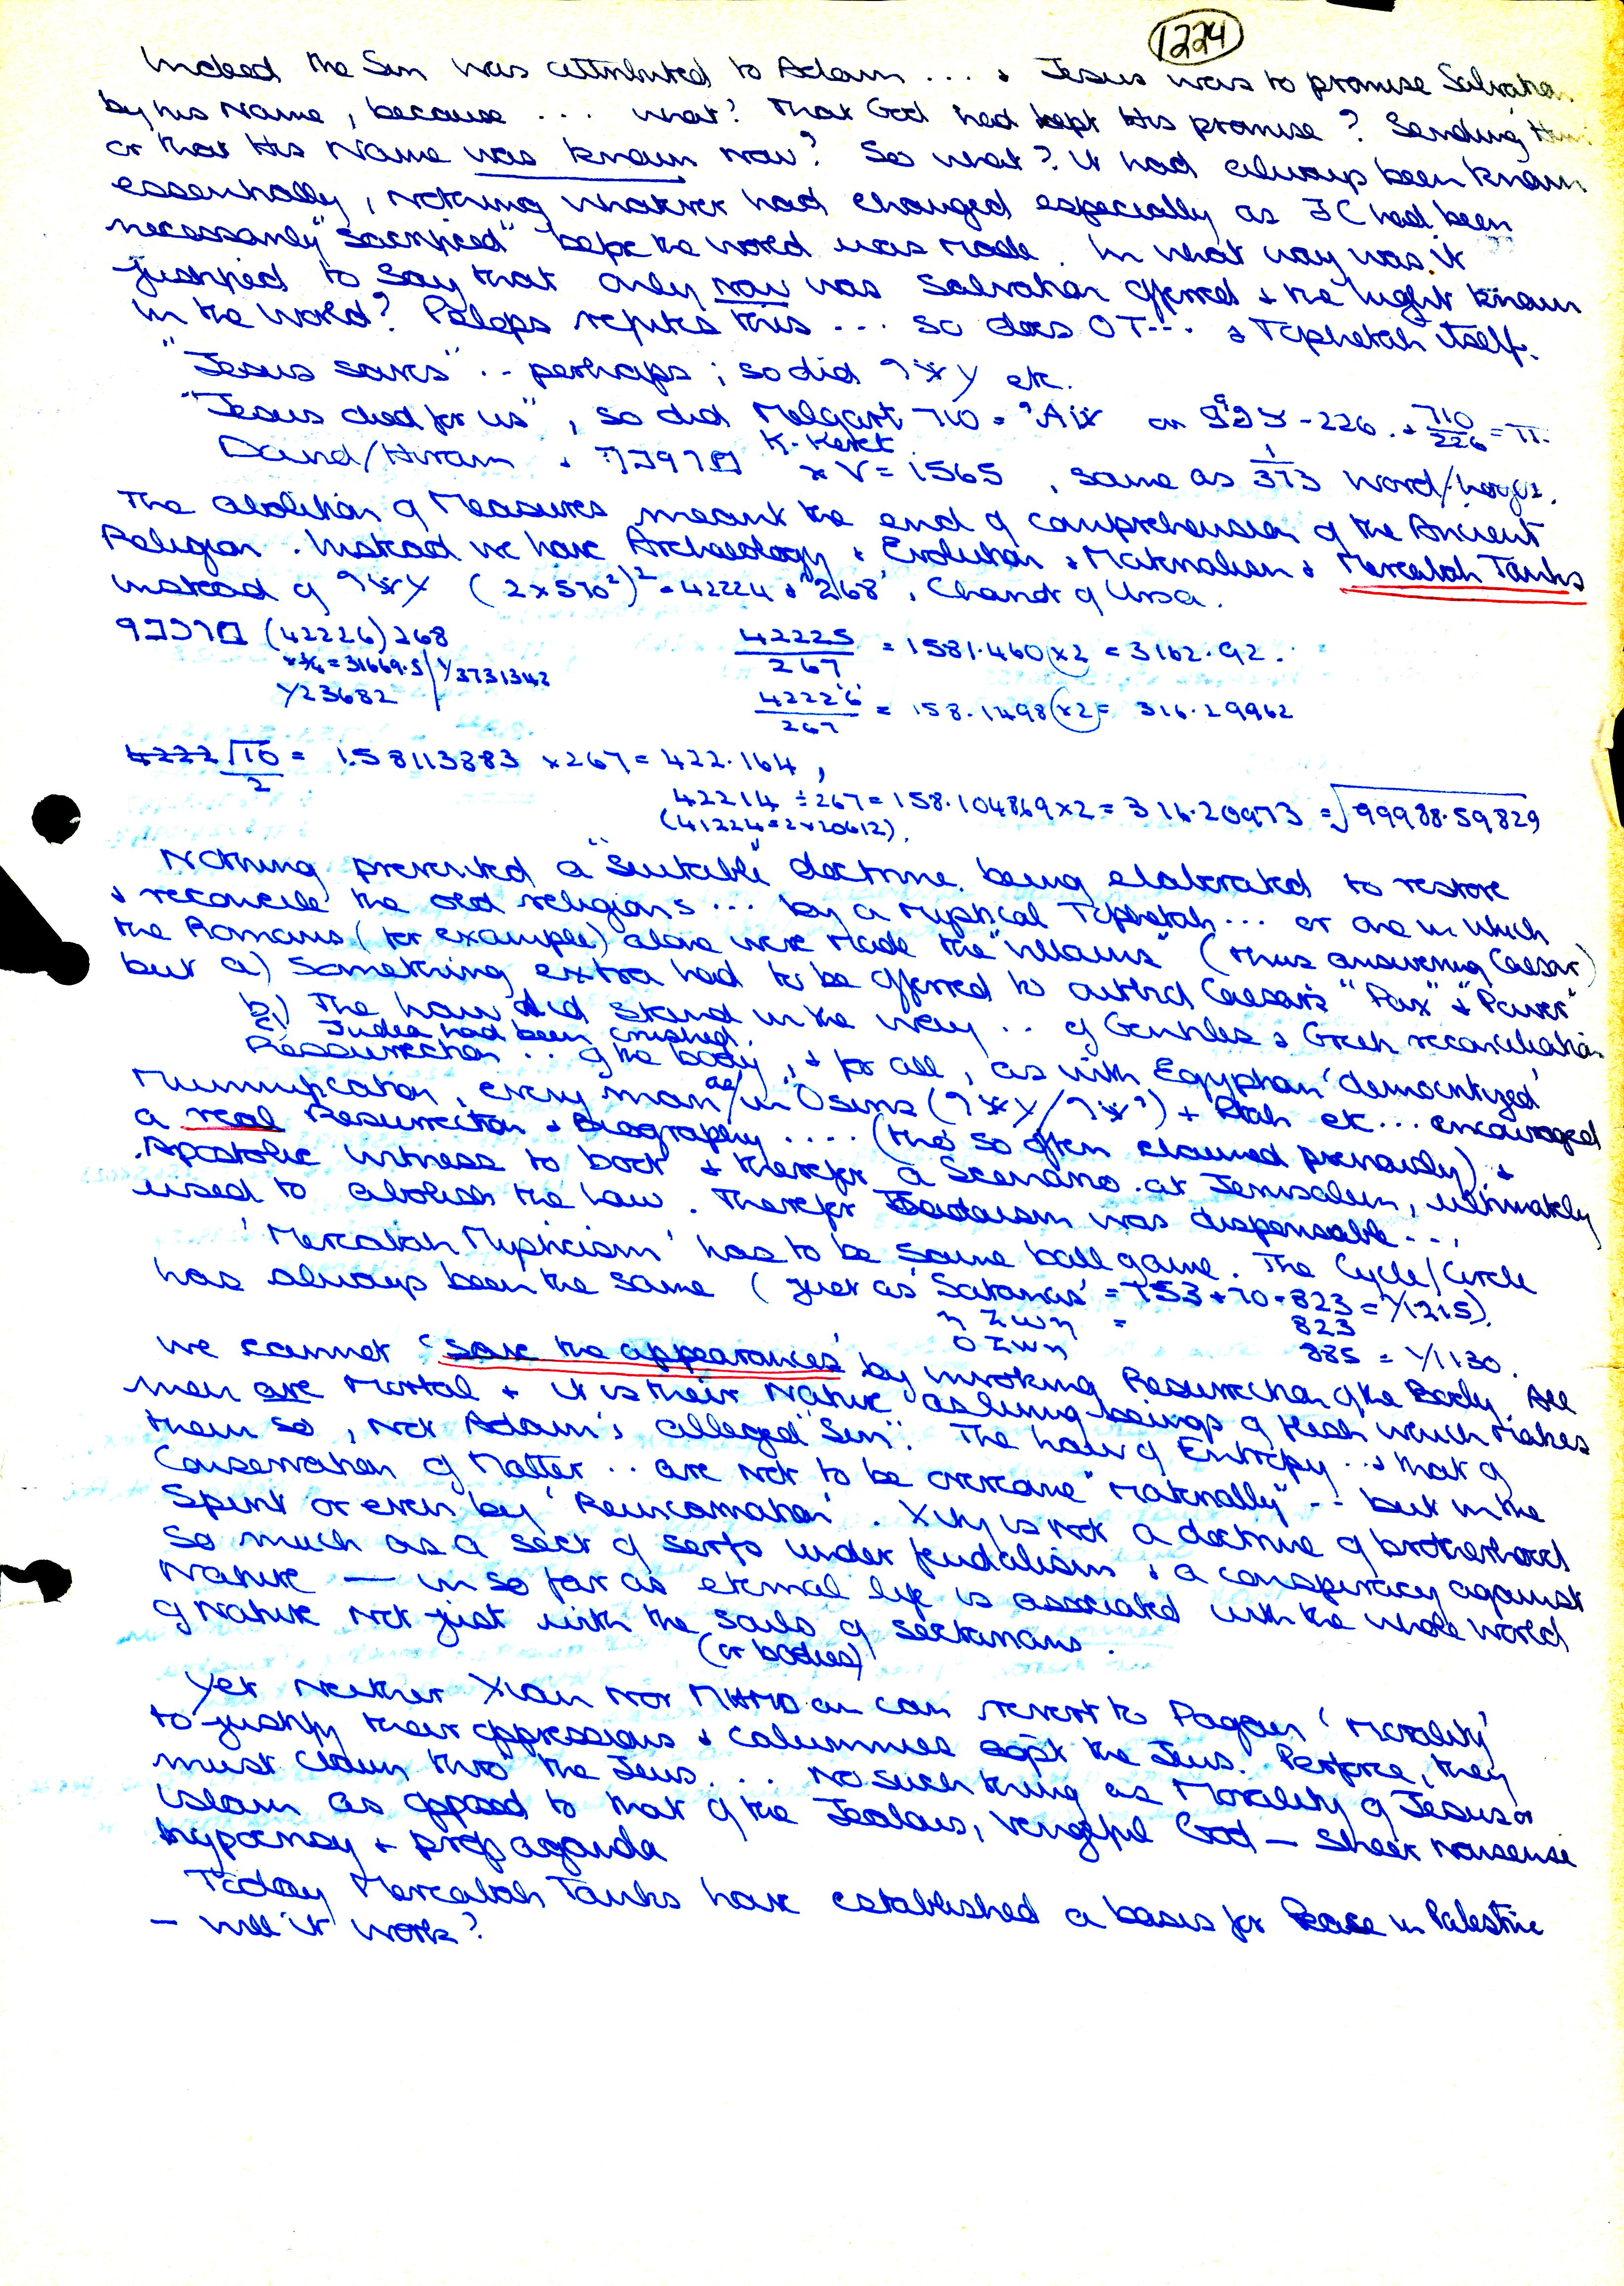 1224
Indeed the Sin was attributed to Adam ... & Jesus was to promise Salvation
by his Name, because ... what? That God had kept His promise? Sending
or that His Name was known now? So what? it had always been known
essentially, nothing whatever had changed especially as JC had been
necessarily "sacrificed" before the world was made. In what way was it
justified to say that only now was Salvation offered & the light known
in the World? Pelops refutes this ... so does OT ... & Tophetah itself.
"Jesus saves" .. perhaps ; so did etc.
"Jesus died for us", so did Melqart 710 = - 226. & 710/226 = π.
K. Keret
David/Hiram & x V = 1565, same as 1/373 Word/Logos.
The abolition of Measures meant the end of comprehension of the Ancient
Religion. Instead we have Archaeology & Evolution & Materialism & Mercabah Tanks
instead of (2 x 570²)² = 42224 & "268", Chariot of Ursa.
(42226) 268
x 3/4 = 31669.5 / 1/3731342
1/23682
42225/267 = 1581.460 (x2 = 3162.92.
42226/267 = 158.1498 (x2) = 316.29962
4222 √10/2 = 1.58113883 x 267 = 422.164,
42214 ÷ 267 = 158.104869 x 2 = 316.20973 = √99988.59829
(41224 = 2 x 20612).
Nothing prevented a "suitable" doctrine being elaborated to restore
& reconcile the old religions ... by a mystical Tophetah ... or one in which
the Romans (for example) alone were made the "villains" (thus answering Caesar)
but a) Something extra had to be offered to outbid Caesar's "Pax" & "Power"
b) The Law did stand in the way .. of Gentiles & Greek reconciliation
c) Judea had been crushed.
Ressurrection .. of the body, & for all, as with Egyptian 'democratized'
Mummification, every man in Osiris + Ptah etc ... encouraged
a real Resurrection & Biography .... (tho' so often claimed previously) &
Apostolic witness to both & therefor a Scenario at Jerusalem, ultimately
used to abolish the Law. Therefor Judaism was dispensable ...
'Mercabah Mysticism' has to be same ball game. The Cycle/Circle
has always been the same (just as 'Satanas' = 753 + 70 = 823 = 1/1215).
η ζωη = 823
ο ζωη 885 = 1/1130.
We cannot 'save the appearances' by invoking Resurrection of the Body. All
men are Mortal & it is their Nature as living beings of flesh which makes
them so, not Adam's alleged "Sin". The Law of Entropy .. & that of
Conservation of Matter .. are not to be overcome "materially" -- but in the
Spirit or even by 'Reincarnation'. Xity is not a doctrine of brotherhood
so much as a sect of serfs under feudalism & a conspiracy against
Nature — in so far as eternal life is associated with the whole World
of Nature not just with the souls of sectarians.
(or bodies)
Yet neither Xian nor MHMD an can revert to Pagan 'Morality'
to justify their oppressions & calumnies against the Jews. Perforce, they
must claim thro' the Jews ... No such thing as Morality of Jesus or
Islam as opposed to that of the Jealous, Vengeful God — sheer nonsense
hypocrisy & propaganda
Today Mercabah Tanks have established a basis for Peace in Palestine
— will it work?